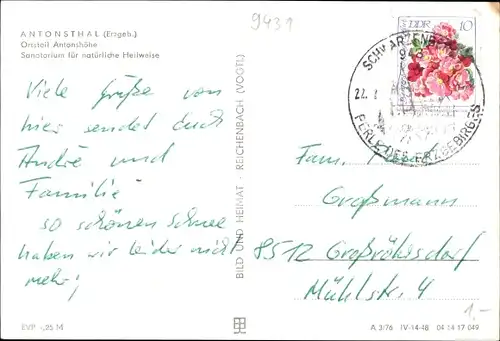 9431
ANTONSTHAL (Erzgeb.)
Ortsteil Antonshöhe
Sanatorium für natürliche Heilweise
Viele Grüße von
hier sendet Euch
André und
Familie
so schönen Schnee
haben wir leider nicht
mehr!
EVP -,25 M
BILD UND HEIMAT · REICHENBACH (VOGTL)
DDR 10
SCHWARZENBERG
943
22.
PERLE DES ERZGEBIRGES
Fam.
Großmann
8512 Großröhrsdorf
Mühlstr. 4
1,-
A 3/76 IV-14-48 04 14 17 049